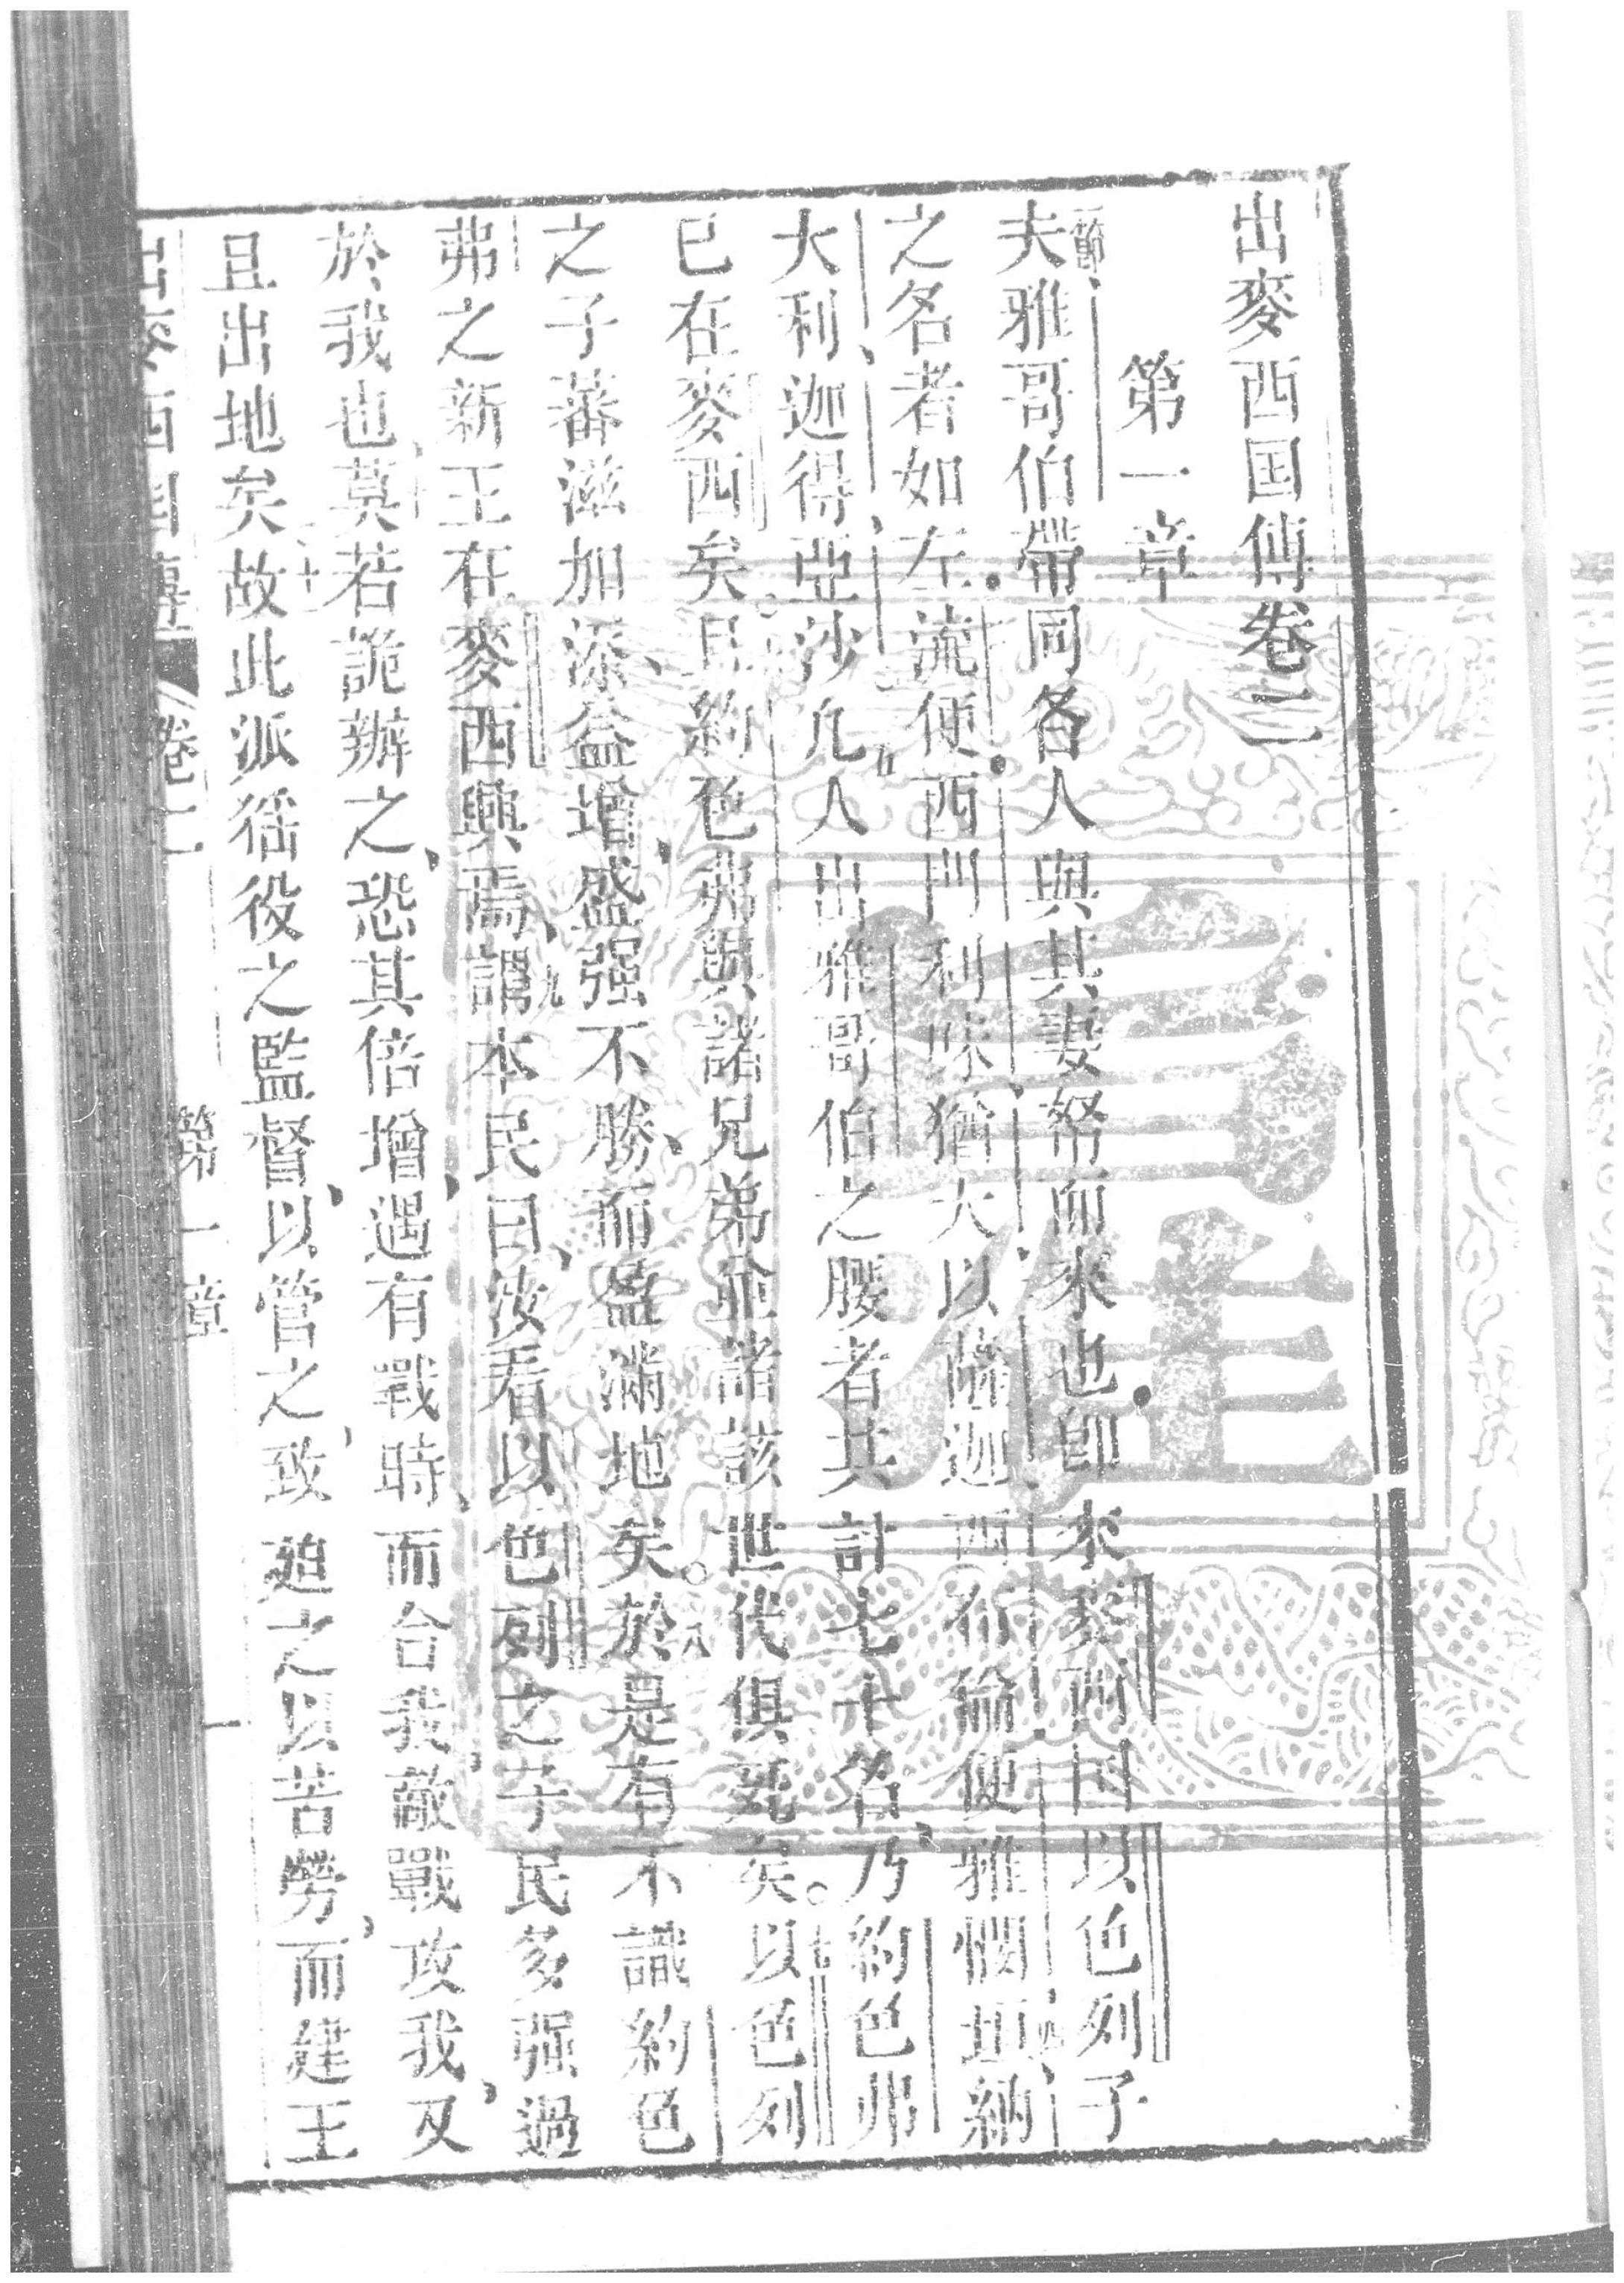 出麥西国傳卷二
第一章
夫雅哥伯帶同各人與其妻帑而來也卽來麥西国以色列子
之名者如左流便西門利味猶大以薩迦西布倫便雅憫但納
大利迦得亞沙凡人出雅哥伯之腰者共計七十名乃約色弗
已在麥西矣且約色弗與諸兄弟並諸該世代俱死矣以色列
之子蕃滋加添益增盛强不勝而盈滿地矣於是有不識約色
弗之新王在麥西興焉謂本民曰汝看以色列之子民多强過
於我也莫若詭辦之恐其倍增遇有戰時而合我敵戰攻我及
且出地矣故此派徭役之監督以管之致廹之以苦勞而建王
出麥西国傳 卷二 第一章 一